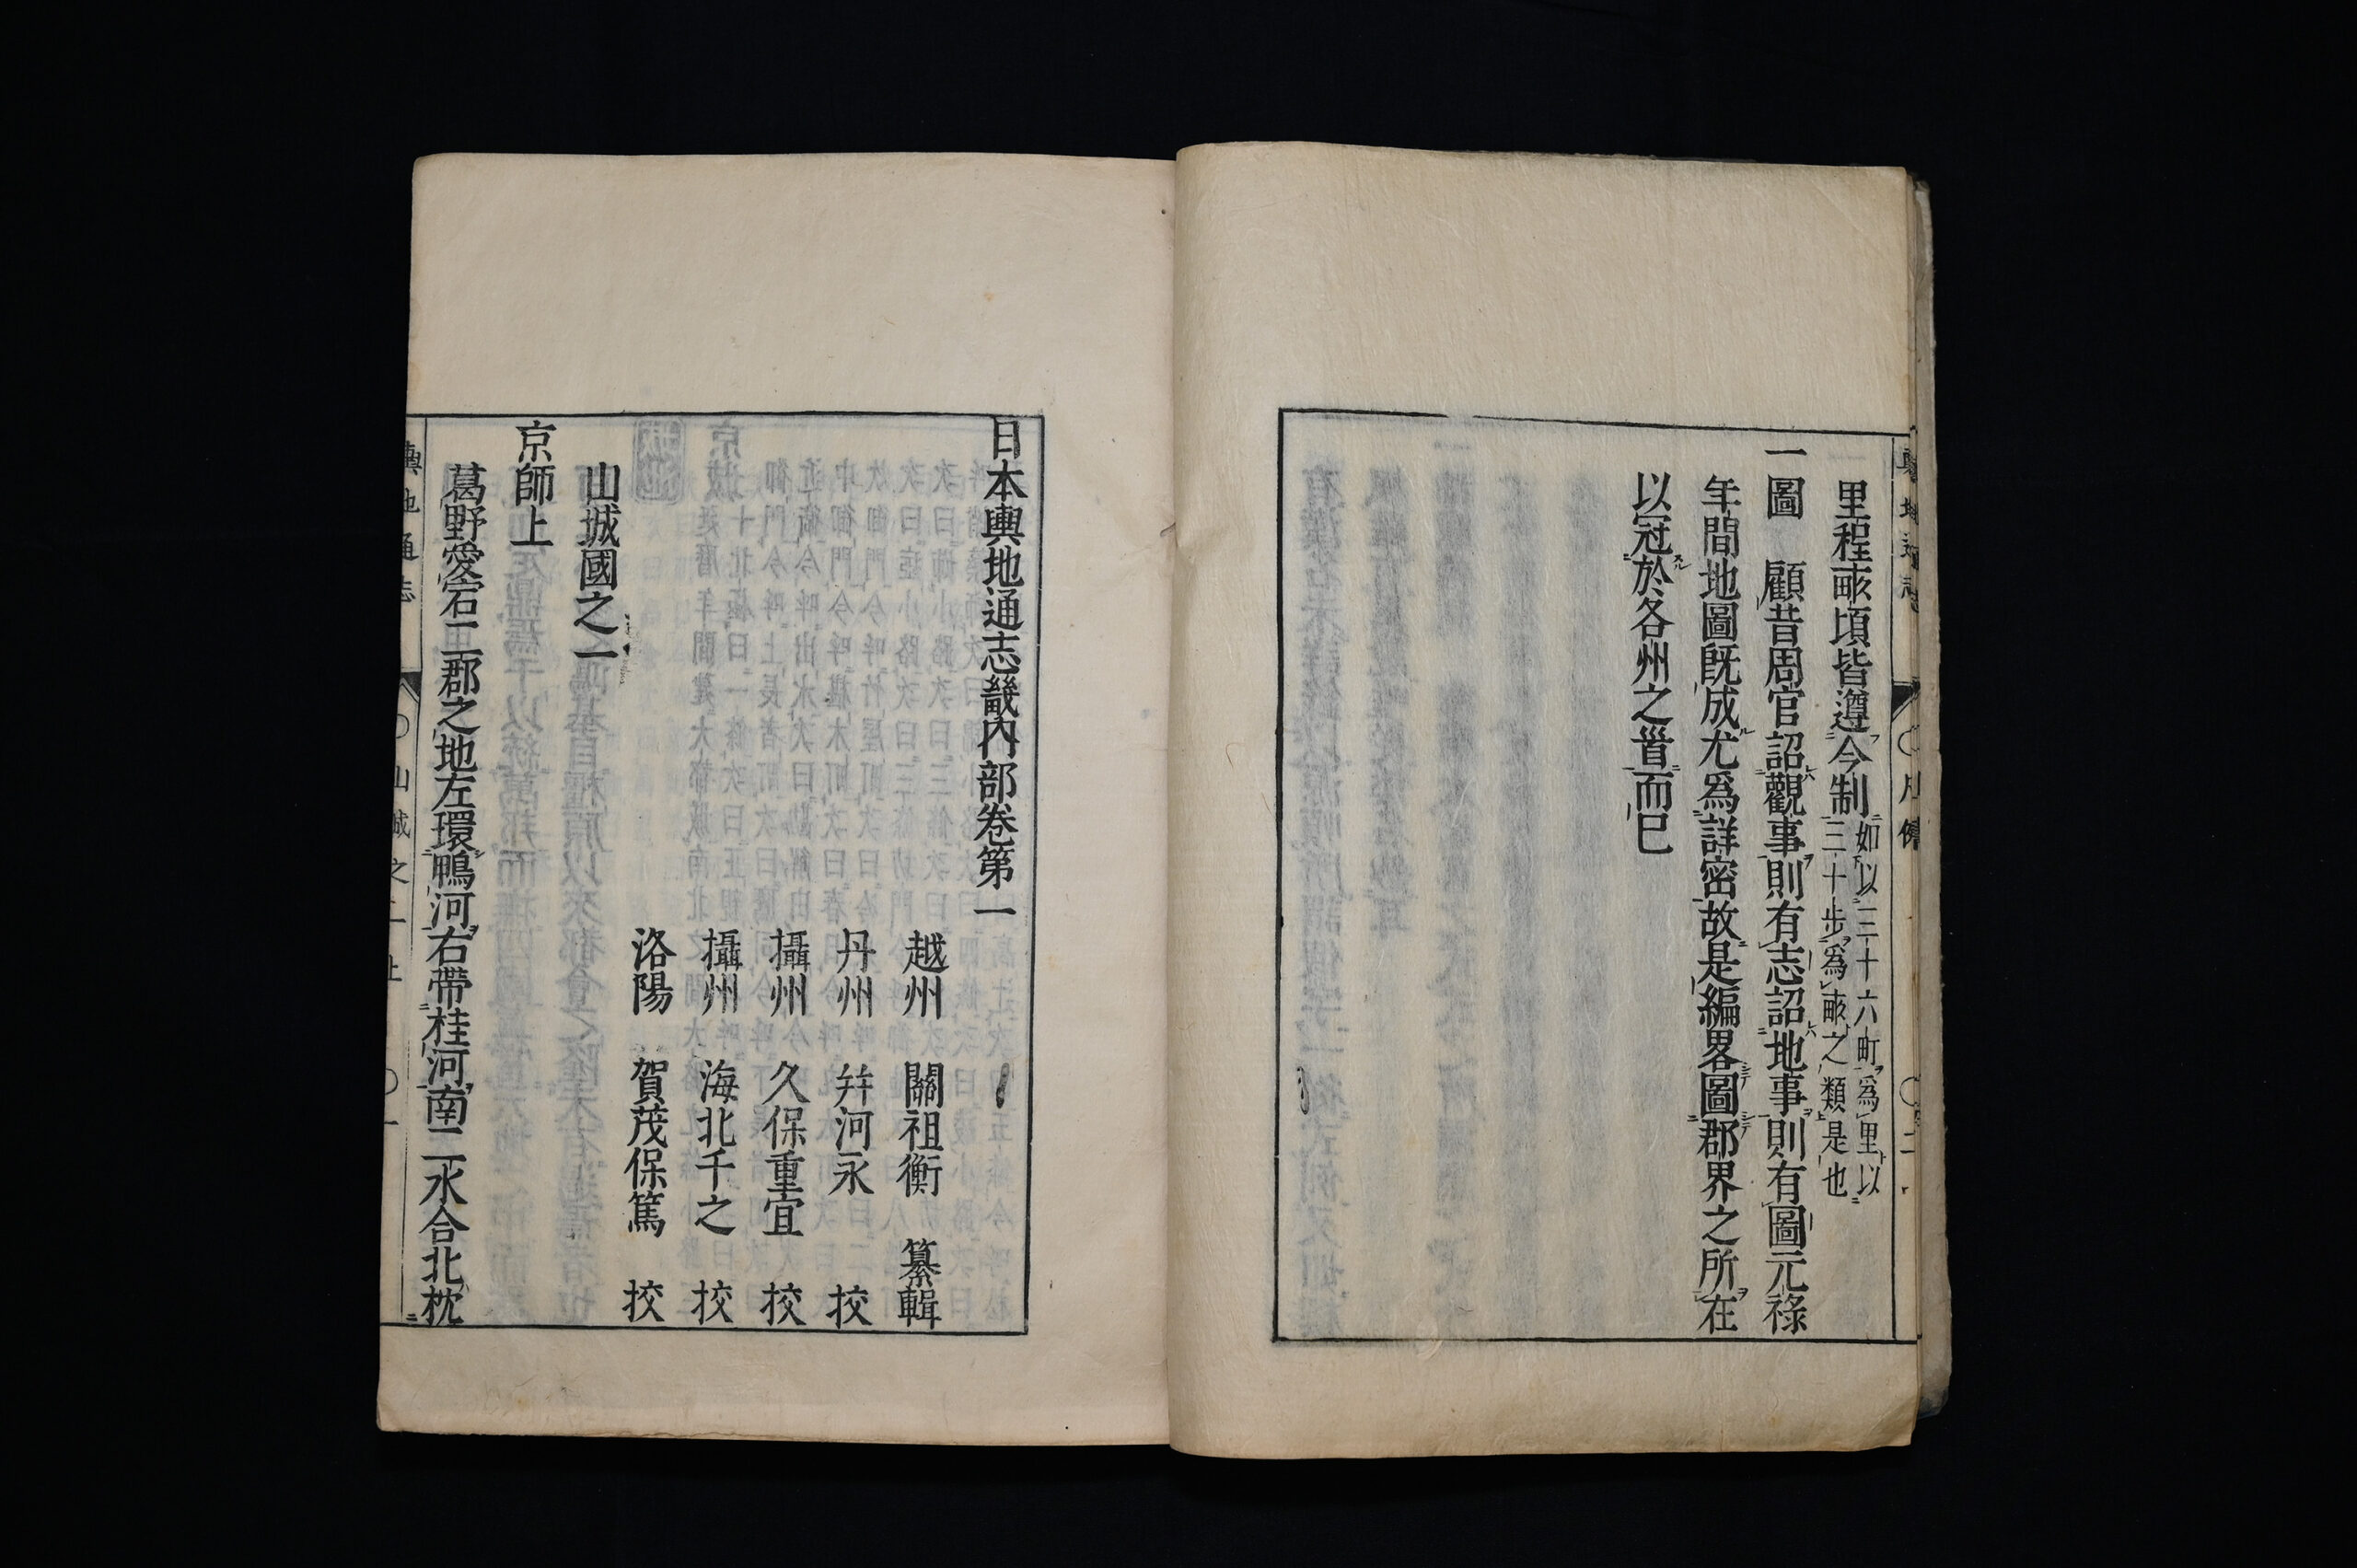 里程畝頃皆遵今制如以三十六町爲里以
三十歩爲畝之類是也
一圖　顧昔周官詔觀事則有志詔地事則有圖元祿
年間地圖既成尤爲詳密故是編畧圖郡界之所在
以冠於各州之首而已
日本輿地通志畿内部卷第一
越州　關祖衡　纂輯
丹州　幷河永　挍
攝州　久保重宜　挍
攝州　海北千之　挍
洛陽　賀茂保篤　挍
山城國之一
京師上
葛野愛宕二郡之地左環鴨河右帶桂河南二水合北枕
輿地通志　〇山城之一上　〇一